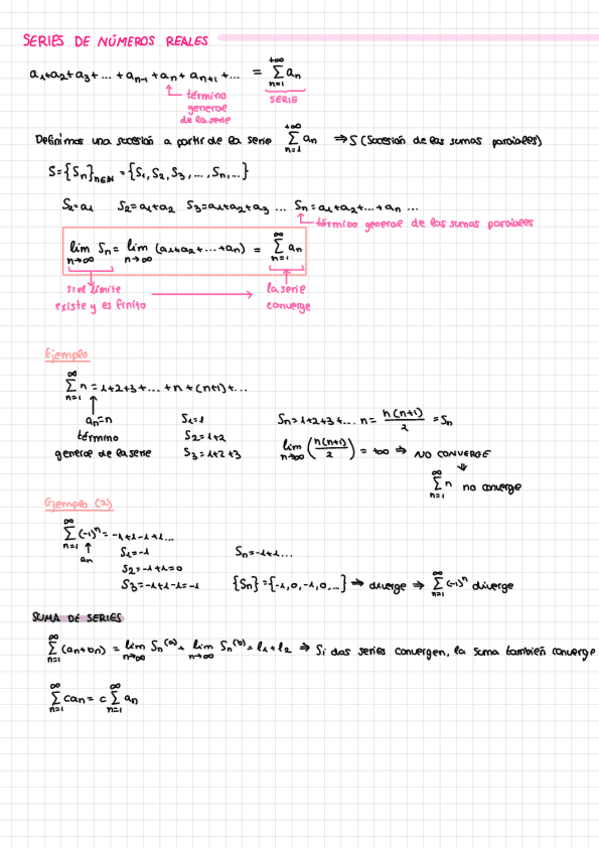 SERIES DE NÚMEROS REALES
a₁+a₂+a₃+...+aₙ₋₁+aₙ+aₙ₊₁+... = +∞ Σ n=1 aₙ
término general de la serie
SERIE
Definimos una sucesión a partir de la serie +∞ Σ n=1 aₙ ⇒ S (Sucesión de las sumas parciales)
S={Sₙ}ₙ∈ℕ = {S₁, S₂, S₃, ..., Sₙ, ...}
S₁=a₁ S₂=a₁+a₂ S₃=a₁+a₂+a₃ ... Sₙ=a₁+a₂+...+aₙ ...
término general de las sumas parciales
lim n→∞ Sₙ = lim n→∞ (a₁+a₂+...+aₙ) = ∞ Σ n=1 aₙ
si el límite → la serie
existe y es finito converge
Ejemplo
∞ Σ n=1 n = 1+2+3+...+n+(n+1)+...
aₙ=n S₁=1 Sₙ=1+2+3+... n = n(n+1)/2 = Sₙ
término S₂=1+2
general de la serie S₃=1+2+3 lim n→∞ (n(n+1)/2) = +∞ ⇒ NO CONVERGE
∞ Σ n=1 n no converge
Ejemplo (2)
∞ Σ n=1 (-1)ⁿ = -1+1-1+1...
aₙ S₁=-1 Sₙ=-1+1...
S₂=-1+1=0
S₃=-1+1-1=-1 {Sₙ}={-1,0,-1,0,...} ⇒ diverge ⇒ ∞ Σ n=1 (-1)ⁿ diverge
SUMA DE SERIES
∞ Σ n=1 (aₙ+bₙ) = lim n→∞ Sₙ⁽ᵃ⁾ + lim n→∞ Sₙ⁽ᵇ⁾ = l₁+l₂ ⇒ Si dos series convergen, la suma también converge
∞ Σ n=1 caₙ = c ∞ Σ n=1 aₙ